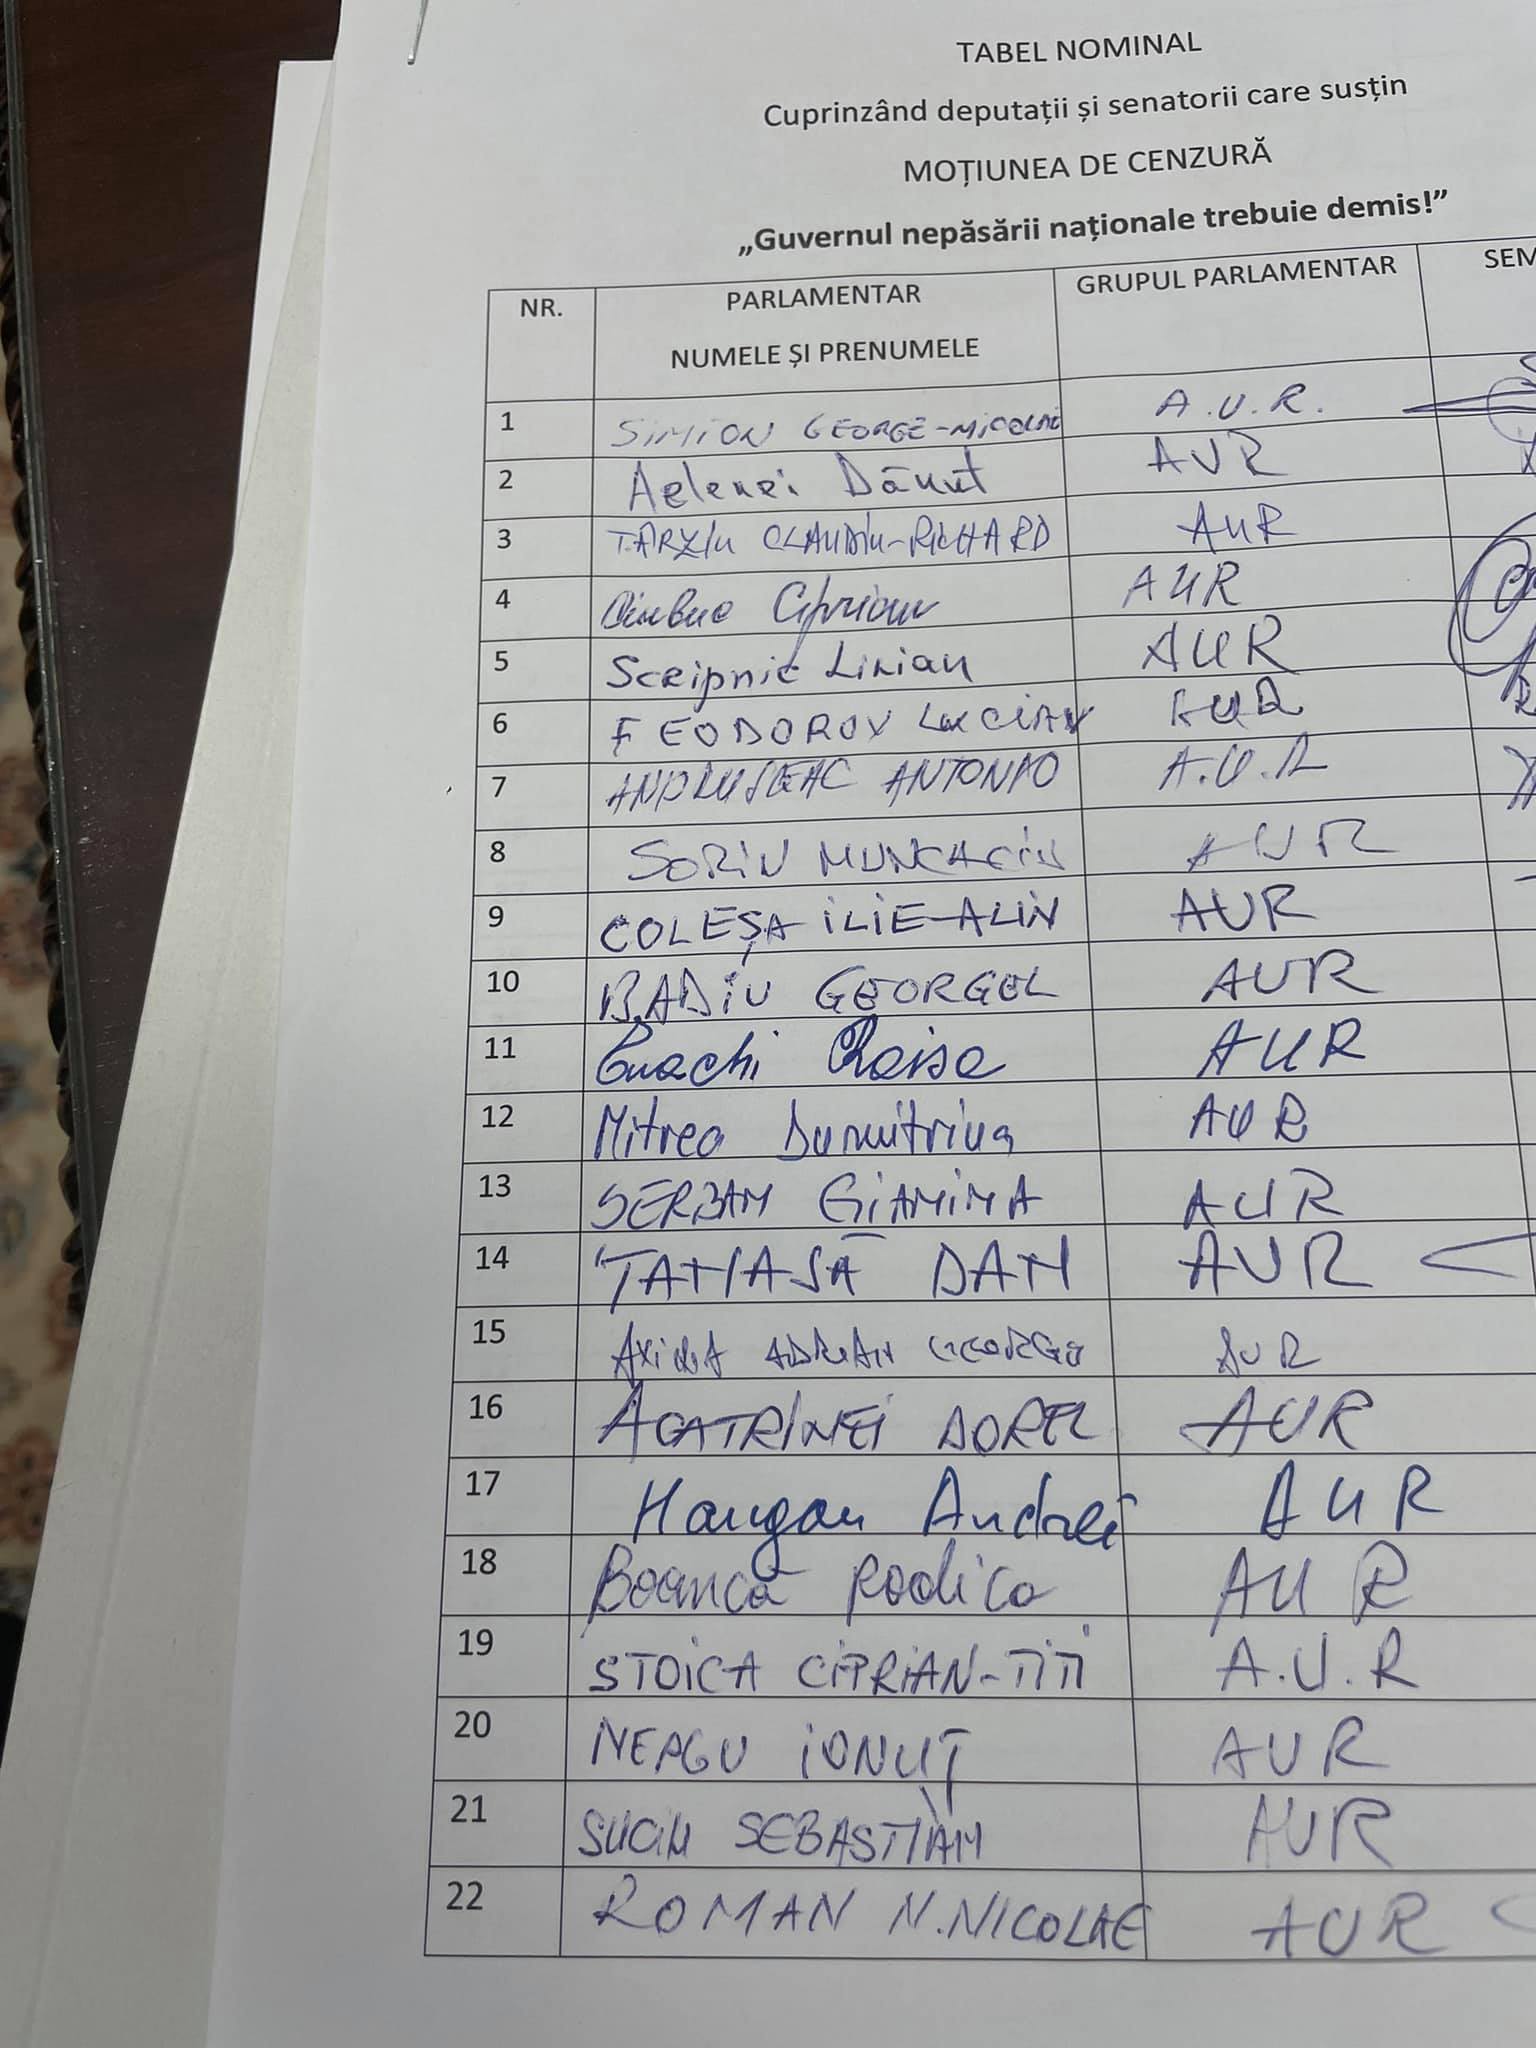 TABEL NOMINAL
Cuprinzând deputații și senatorii care susțin
MOȚIUNEA DE CENZURĂ
„Guvernul nepăsării naționale trebuie demis!”
NR. PARLAMENTAR NUMELE ȘI PRENUMELE GRUPUL PARLAMENTAR SEM
1 SIMION GEORGE-NICOLAE A.U.R.
2 Aelenei Dănuț AUR
3 TÂRZIU CLAUDIU-RICHARD AUR
4 Ciubuc Ciprian AUR
5 Scripnic Lilian AUR
6 FEODOROV LUCIAN AUR
7 ANDRUSCEAC ANTONIO A.U.R
8 SORIN MUNCACIU AUR
9 COLEȘA ILIE-ALIN AUR
10 BADIU GEORGEL AUR
11 Enachi Raisa AUR
12 Mitrea Dumitrina AUR
13 SERBAN GIANINA AUR
14 TANASĂ DAN AUR
15 AXINIA ADRIAN GEORGE AUR
16 ACATRINEI DOREL AUR
17 Hangan Andrei AUR
18 Boancă Rodica AUR
19 STOICA CIPRIAN-TITI A.U.R
20 NEAGU IONUȚ AUR
21 SUCIU SEBASTIAN AUR
22 ROMAN N.NICOLAE AUR